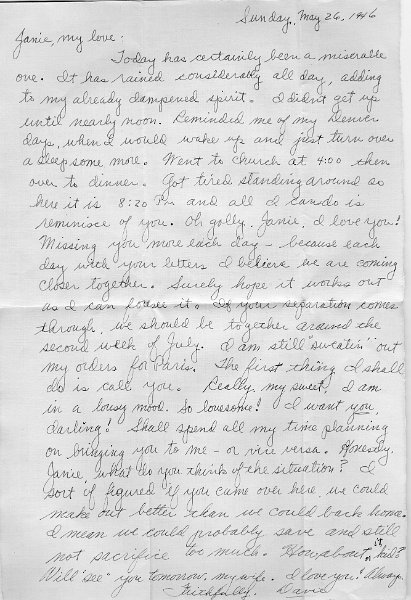 Sunday, May 26, 1946
Janie, my love:
Today has certainly been a miserable
one. It has rained considerably all day, adding
to my already dampened spirit. I didn't get up
until nearly noon. Reminded me of my Denver
days, when I would wake up and just turn over
& sleep some more. Went to church at 4:00 then
over to dinner. Got tired standing around so
here it is 8:20 PM and all I can do is
reminisce of you. Oh golly, Janie, I love you!
Missing you more each day - because each
day with your letters I believe we are coming
closer together. Surely hope it works out
as I can foresee it. If your separation comes
through, we should be together around the
second week of July. I am still "sweatin'" out
my orders for Paris. The first thing I shall
do is call you. Really, my sweet, I am
in a lousy mood. So lonesome! I want you,
darling! Shall spend all my time planning
on bringing you to me - or vice versa. Honestly,
Janie, what do you think of the situation? I
sort of figured if you came over here, we could
make out better than we could back home.
I mean we could probably save and still
not sacrifice too much. How about it, kid?
Will "see" you tomorrow, my wife. I love you! Always.
Faithfully, Dave